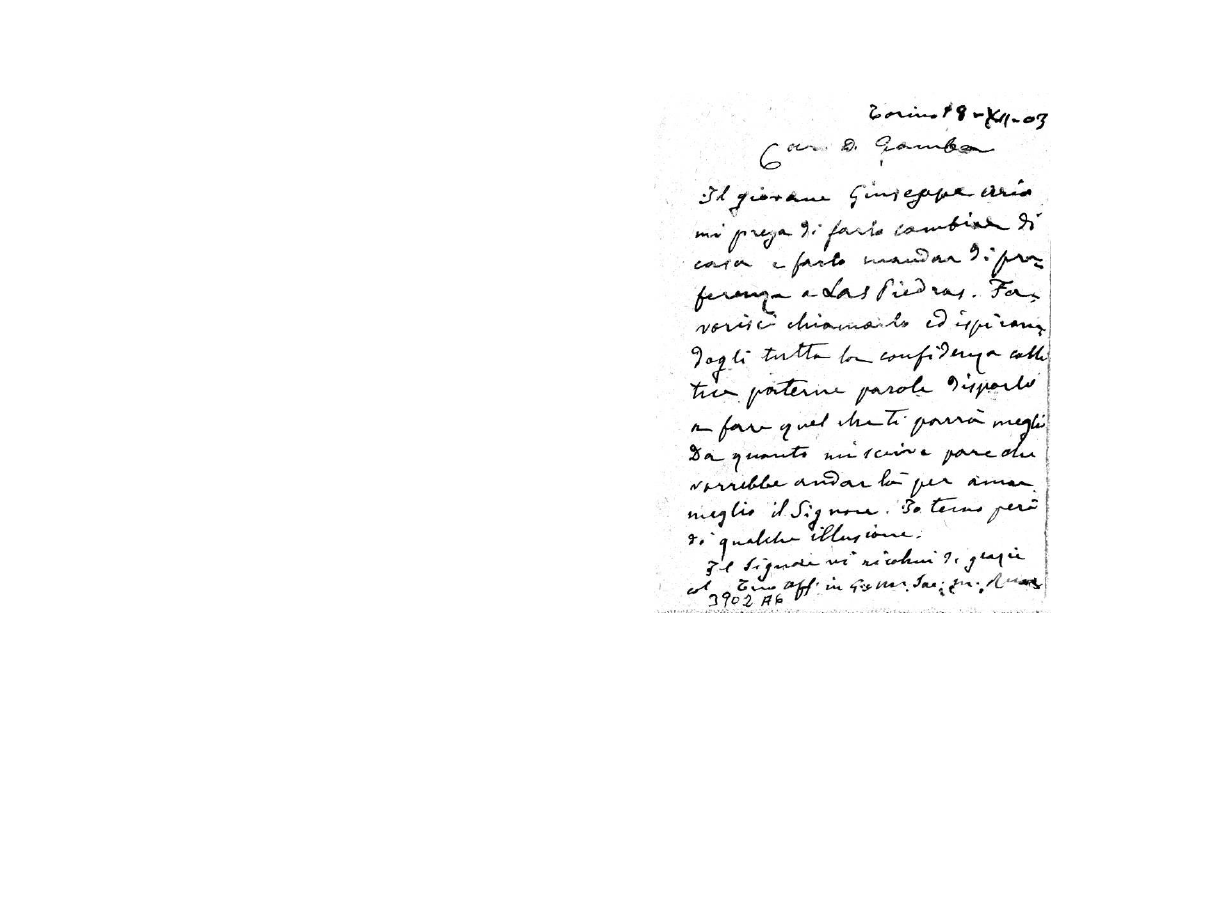 Torino 18-XII-03
Car D. Gamba
Il giovane Giuseppe
mi prega di farlo cambiar di
casa e farlo mandar di pre=
ferenza a Las Piedras. Fa=
vorisci chiamarlo ed ispiran=
dogli tutta la confidenza colle
tue paterne parole disporlo
a fare quel che ti parrà meglio
Da quanto mi scrive pare che
vorrebbe andar là per amar
meglio il Signore. Io temo però
di qualche illusione.
Il Signore vi ricolmi di grazie
col Tuo aff. in G. e M. Sac. M. Rua
3902 A6